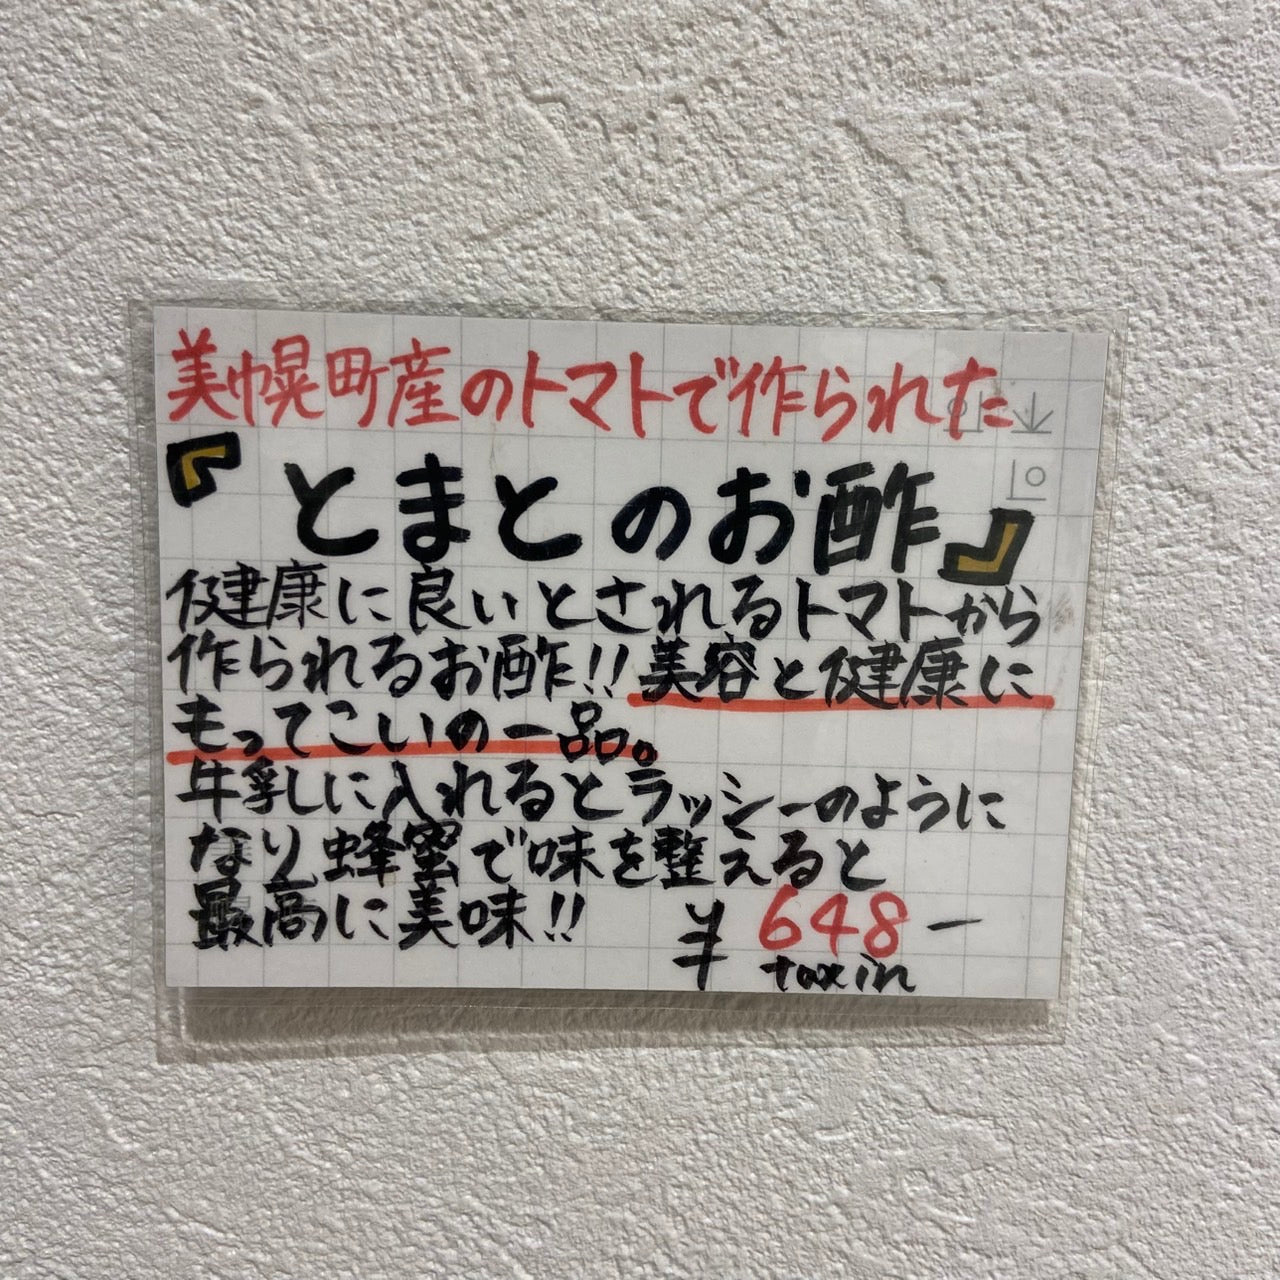 美幌町産のトマトで作られた
『とまとのお酢』
健康に良いとされるトマトから
作られるお酢!!美容と健康に
もってこいの一品。
牛乳に入れるとラッシーのように
なり蜂蜜で味を整えると
最高に美味!!
¥648-
tax in